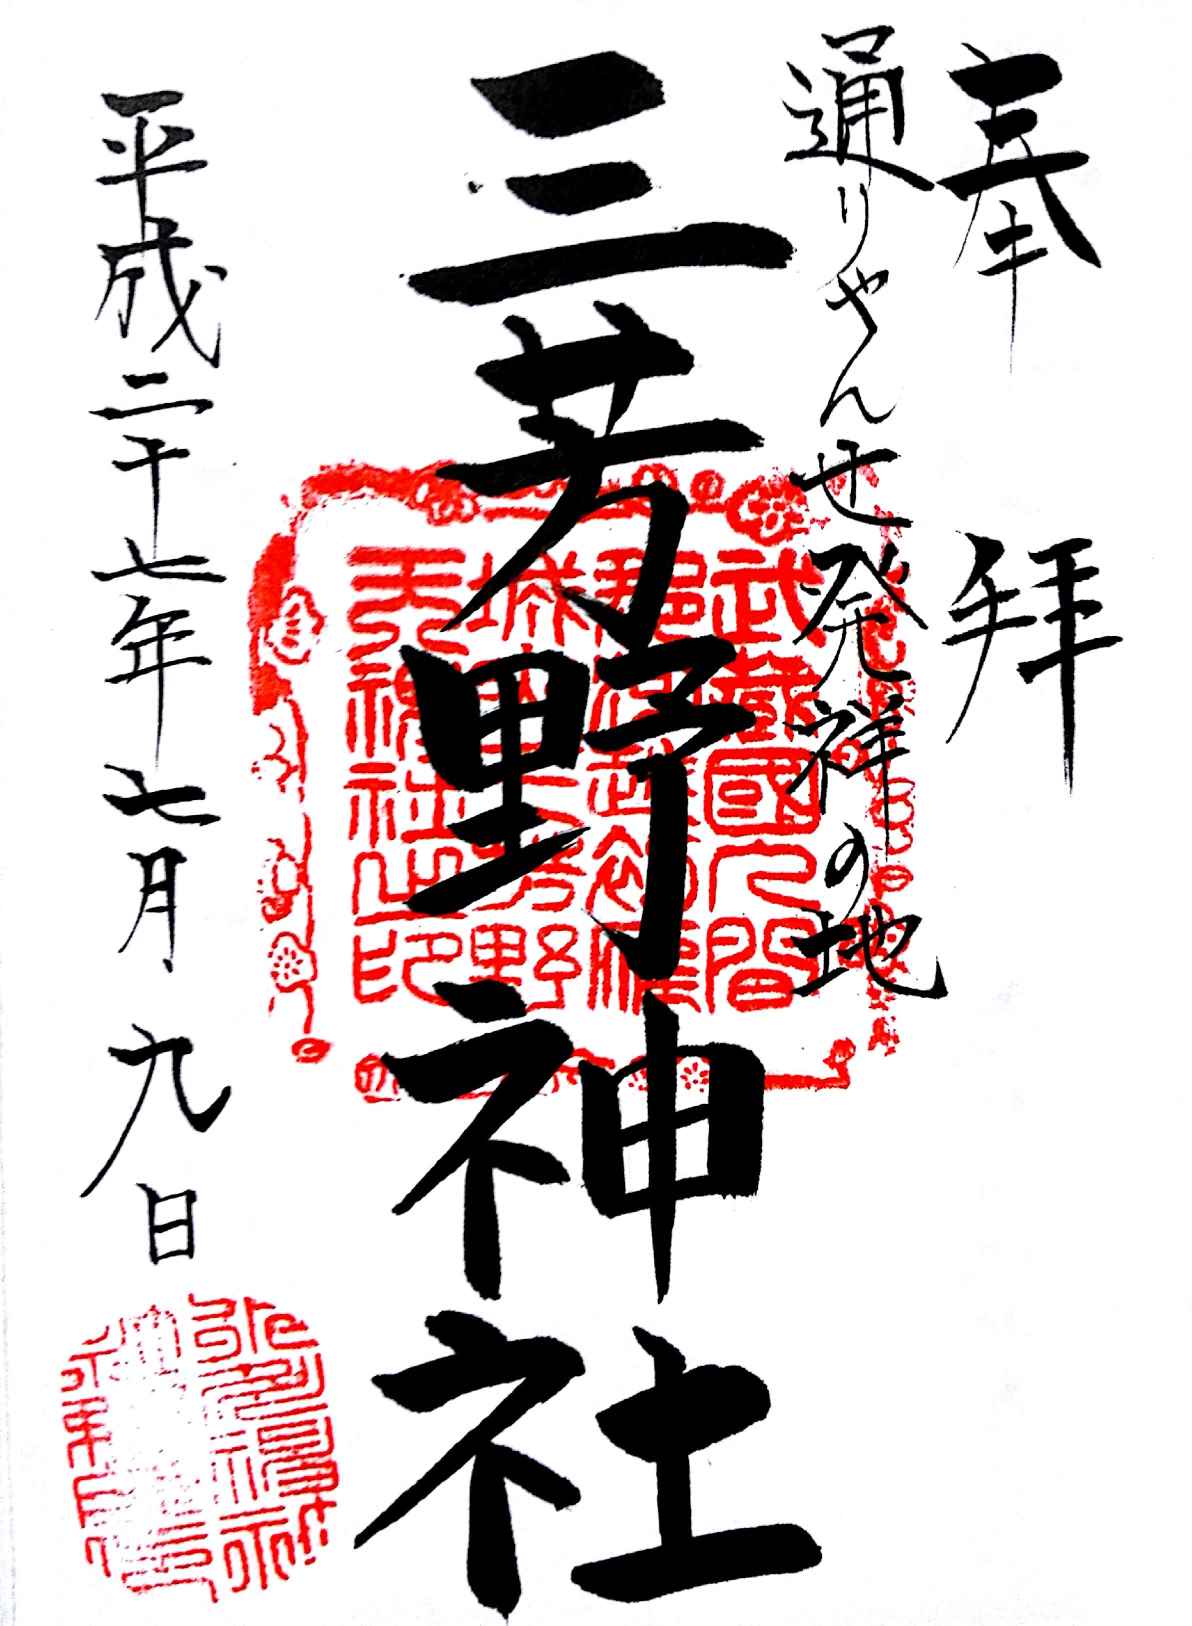 奉拝
通りゃんせ発祥の地
三芳野神社
平成二十七年七月九日
武蔵國入間
郡河越初雁
城内三芳野
天神社之印